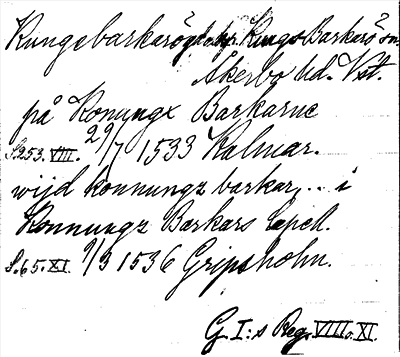 Kungsbarkarö gtokp. Kungs Barkarö sn.
Åkerbo hd. Vstl.
på Konungx Barkarne
S.253.VIII. 29/7 1533 Kalmar.
wijd konnungz barkar... i
Konnungz Barkars Capell.
S.65.XI. 9/3 1536 Gripsholm.
G. I:s Reg. VIII o. XI.